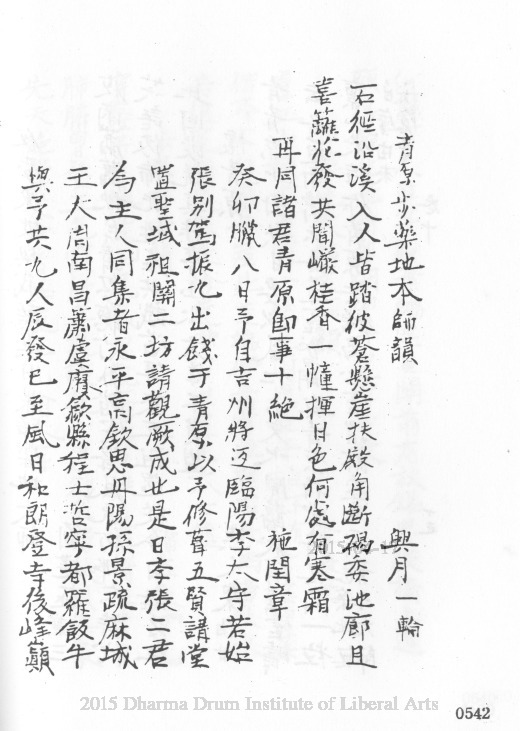 青原步藥地本師韻
興月一輪
石徑沿溪入人皆踏彼蒼懸崖扶殿角斷碣委池廊且
喜籬花發共聞巖桂香一幢揮日色何處有寒霜
再同諸君青原即事十絕
施閏章
癸卯臘八日予自吉州將還臨陽李太守若始
張別駕振九出餞于青原以予修葺五賢講堂
置聖域祖關二坊請觀厥成也是日李張二君
為主人同集者永平高欽思丹陽孫景疏麻城
王大周南昌蕭盧度歙縣程士哲寧都羅飯牛
與予共九人辰發巳至風日和朗登寺後峰巔
2015 Dharma Drum Institute of Liberal Arts
0542